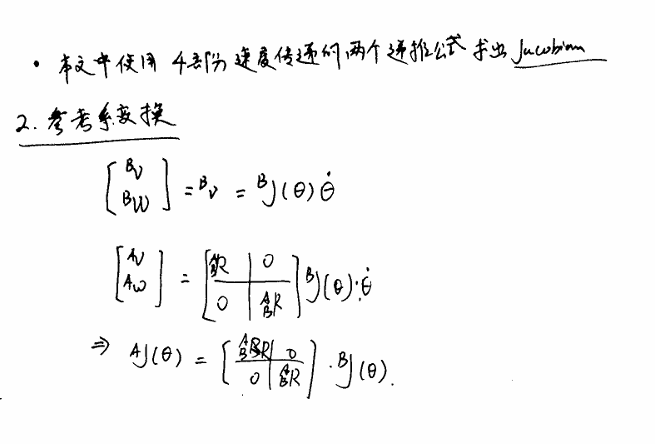 · 本文中使用 4部份 速度传递的两个递推公式 求出 Jacobian
2. 参考系变换
[ᴮv; ᴮω] = ᴮν = ᴮJ(θ)θ̇
[ᴬv; ᴬω] = [ᴬ_BR | 0; 0 | ᴬ_BR] ᴮJ(θ)·θ̇
⇒ ᴬJ(θ) = [ᴬ_BR | 0; 0 | ᴬ_BR] · ᴮJ(θ).